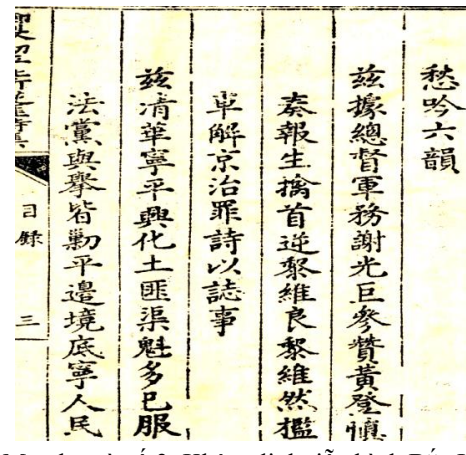 愁吟六韻
茲據總督軍務謝光巨參贊黃登慎
奏報生擒首逆黎維良黎維然檻
車解京治罪詩以誌事
茲清華寧平興化土匪渠魁多已服
法黨與舉皆勦平邊境底寧人民
目錄
三